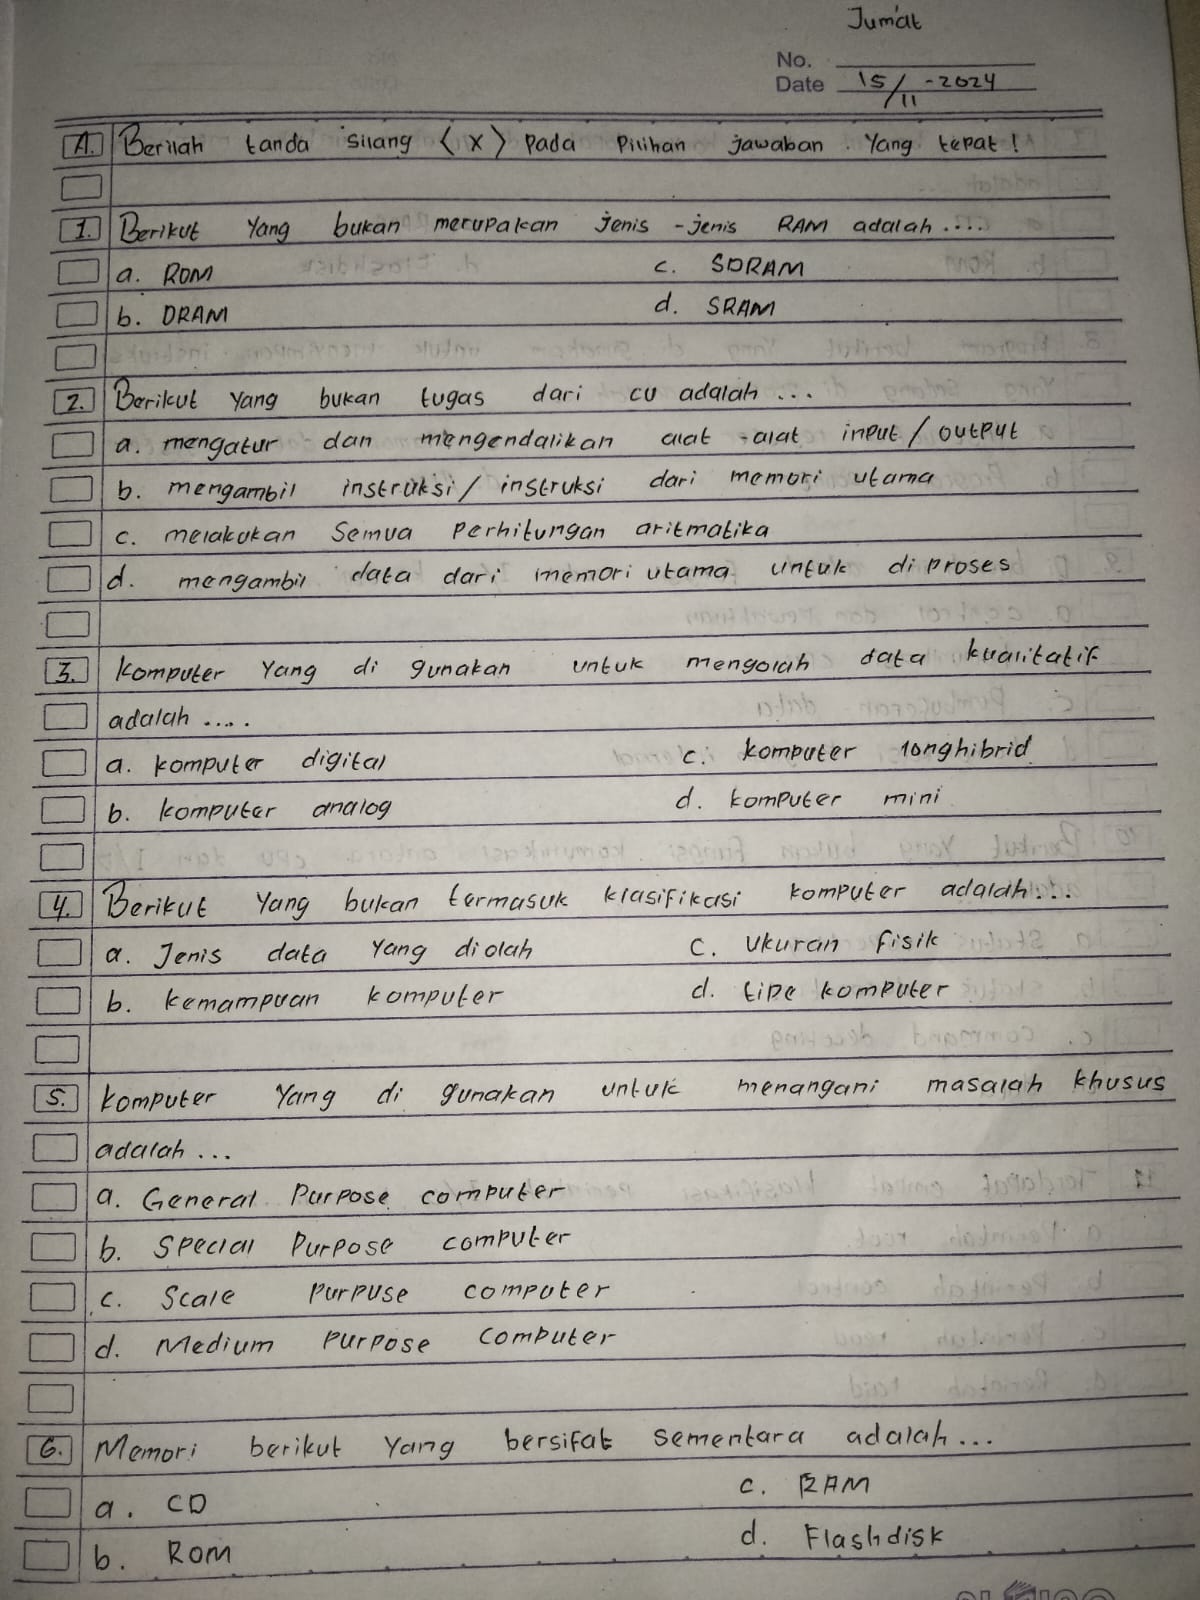 Jum'at
No.
Date 15/11-2024
A. Berilah tanda silang (x) pada pilihan jawaban yang tepat!
1. Berikut yang bukan merupakan jenis-jenis RAM adalah....
a. ROM c. SDRAM
b. DRAM d. SRAM
2. Berikut yang bukan tugas dari cu adalah...
a. mengatur dan mengendalikan alat-alat input/output
b. mengambil instruksi/instruksi dari memori utama
c. melakukan semua perhitungan aritmatika
d. mengambil data dari memori utama untuk di proses
3. Komputer yang di gunakan untuk mengolah data kualitatif
adalah.....
a. komputer digital c. komputer longhibrid
b. komputer analog d. komputer mini
4. Berikut yang bukan termasuk klasifikasi komputer adalah...
a. Jenis data yang diolah c. ukuran fisik
b. kemampuan komputer d. tipe komputer
5. Komputer yang di gunakan untuk menangani masalah khusus
adalah...
a. General Purpose computer
b. Special Purpose computer
c. Scale Purpuse computer
d. Medium Purpose computer
6. Memori berikut yang bersifat sementara adalah...
a. CD c. RAM
b. ROM d. Flashdisk